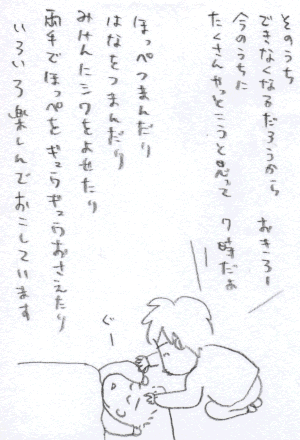 そのうち
できなくなるだろうから
今のうちに
たくさんやっとこうと思って
おきろー
7時だよ
ほっぺつまんだり
はなをつまんだり
みけんにシワをよせたり
両手でほっぺを ギュウギュウおさえたり
いろいろ楽しんでおこしています
ぐー